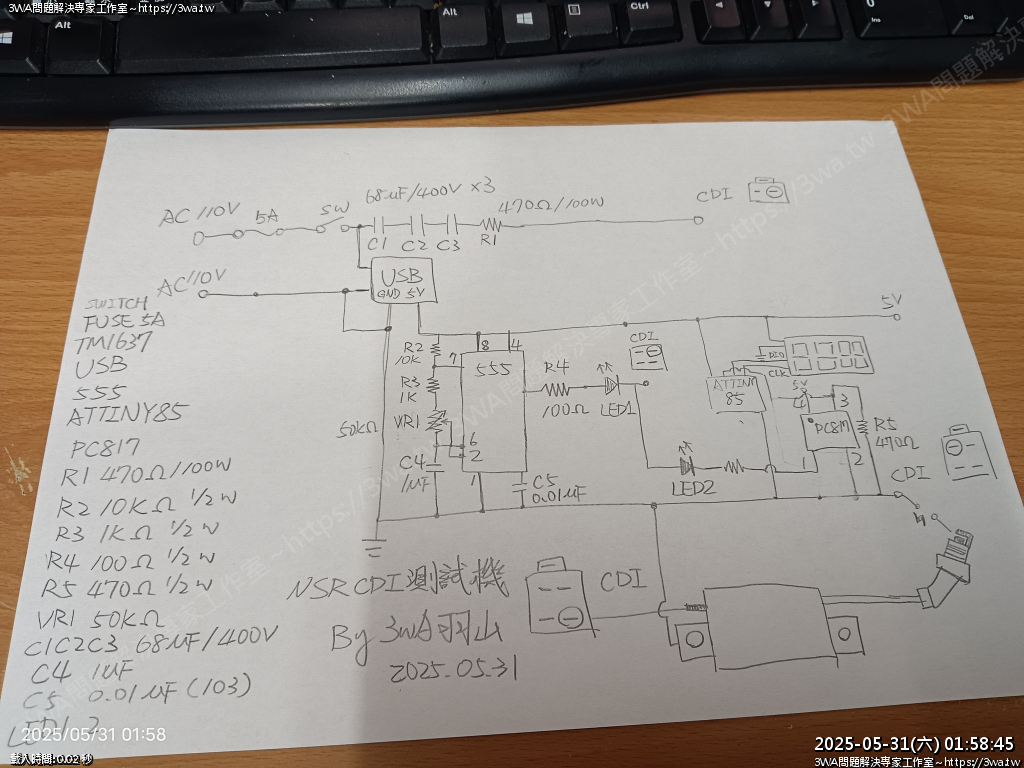 3WA問題解決專家工作室~https://3wa.tw
Alt
Alt
Ctrl
0
Ins
Del
68uF/400V ×3
470Ω/100W
CDI
AC 110V
5A
SW
C1 C2 C3 R1
AC 110V
USB
GND 5V
5V
SWITCH
FUSE 5A
TM1637
USB
555
ATTINY85
PC817
R1 470Ω/100W
R2 10KΩ 1/2W
R3 1KΩ 1/2W
R4 100Ω 1/2W
R5 470Ω 1/2W
VR1 50KΩ
C1C2C3 68uF/400V
C4 1uF
C5 0.01uF(103)
R2
10K
7
8
4
555
R3
1K
VR1
50KΩ
6
2
C4
1uF
1
C5
0.01uF
R4
100Ω
LED1
CDI
LED2
ATTINY
85
DIO
CLK
5V
4
3
PC817
1
2
R5
470Ω
CDI
NSR CDI測試機
By 3WA羽山
2025.05.31
CDI
2025/05/31 01:58
載入時間:0.02 秒
2025-05-31(六) 01:58:45
3WA問題解決專家工作室~https://3wa.tw